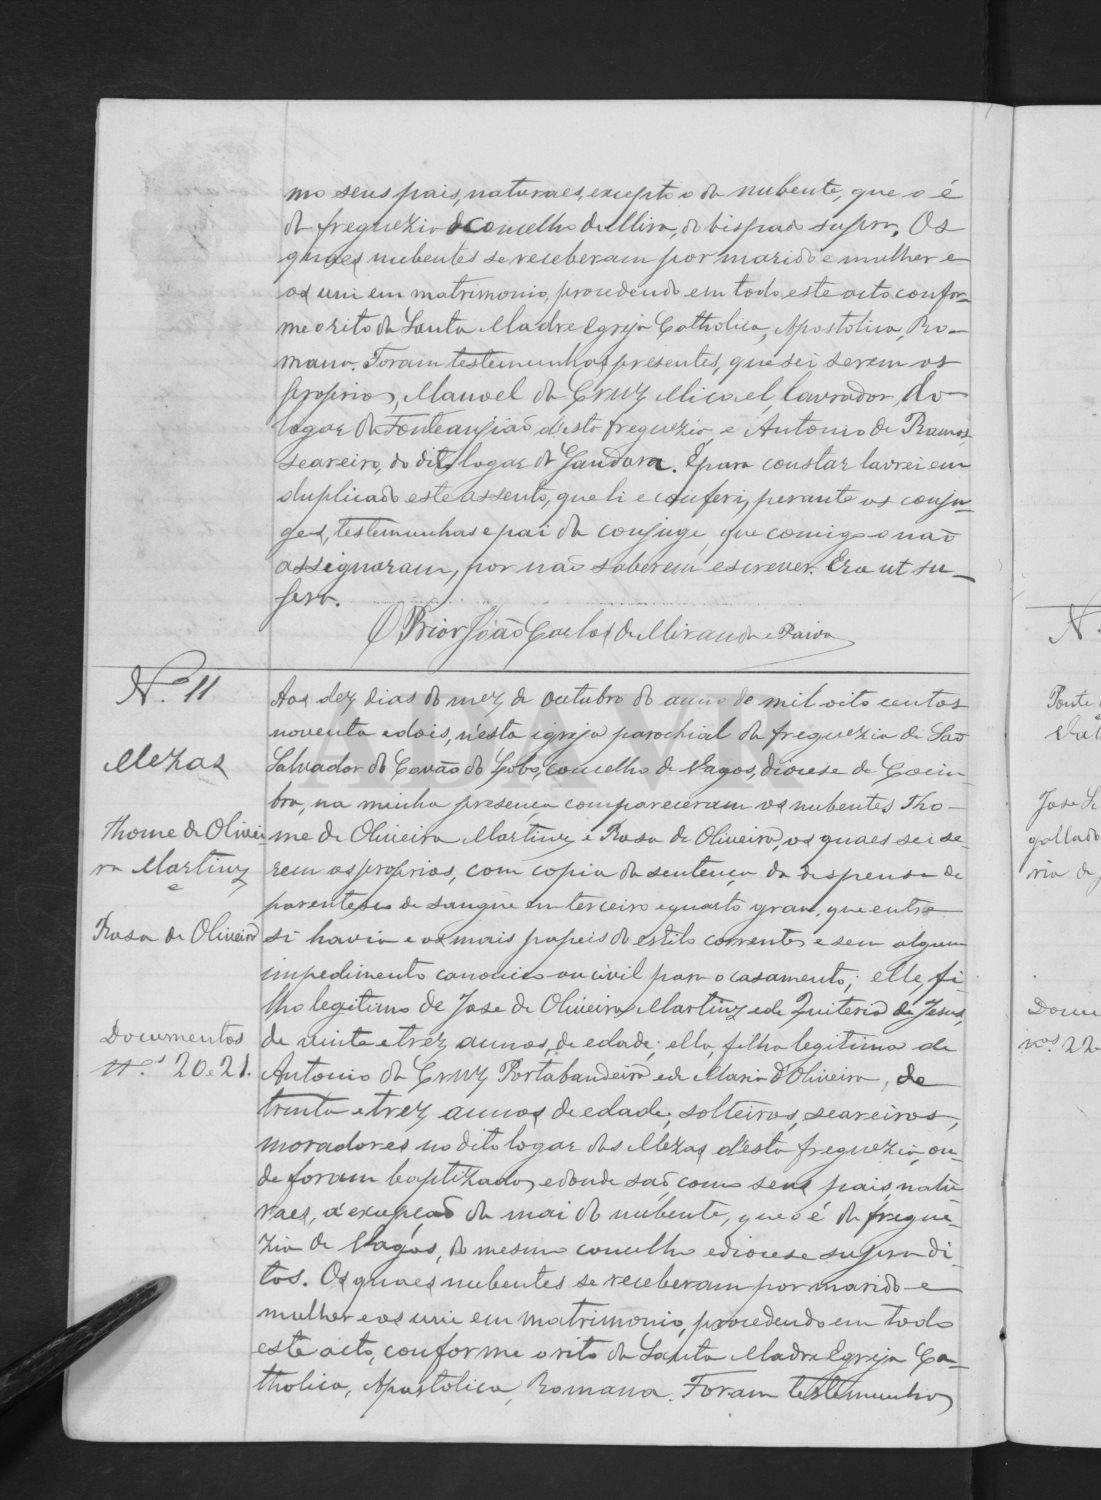 mo seus pais, naturaes, excepto o da nubente, que o é
da freguezia e concelho de Mira, do bispado supra. Os
quaes nubentes se receberam por marido e mulher e
os uni em matrimonio, procedendo em todo este acto confor-
me o rito da Santa Madre Egreja Catholica, Apostolica, Ro-
mana. Foram testemunhas presentes, que sei serem os
proprios, Manoel da Cruz Micael, lavrador, do
logar da Fonte angião d'esta freguezia, e Antonio de Ramos
seareiro, do dito logar da Gandara. E para constar lavrei em
duplicado este assento, que li e conferi, perante os conju-
ges, testemunhas e pai da conjuge, que comigo o não
assignaram, por não saberem escrever. Era ut su-
pra.
O Prior João Carlos de Miranda e Paiva
N.º 11
Mezas
Thome de Olivei-
ra Martins
e
Rosa de Oliveira
Documentos
n.os 20 e 21.
Aos dez dias do mez de outubro do anno de mil oito centos
noventa e dois, n'esta igreja parochial da freguezia de São
Salvador do Covão do Lobo, concelho de Vagos, diocese de Coim-
bra, na minha presença compareceram os nubentes Tho-
me de Oliveira Martins e Rosa de Oliveira, os quaes sei se-
rem os proprios, com copia da sentença da dispensa de
parentesco de sangue em terceiro e quarto grau, que entre
si havia e os mais papeis do estilo correntes e sem algum
impedimento canonico ou civil para o casamento; elle, fi-
lho legitimo de Jose de Oliveira Martins e de Quiteria de Jesus,
de vinte e trez annos, de edade; ella, filha legitima de
Antonio da Cruz Portabandeira e de Maria d'Oliveira, de
trinta e trez annos de edade, solteiros, seareiros,
moradores no dito logar das Mezas d'esta freguezia, on-
de foram baptizados, e donde são, como seus pais, natu-
raes, á excepção da mai do nubente, que o é da fregue-
zia de Vagos, do mesmo concelho e diocese supra di-
tos. Os quaes nubentes se receberam por marido e
mulher e os uni em matrimonio, procedendo em todo
este acto, conforme o rito da Santa Madre Egreja Ca-
tholica, Apostolica, Romana. Foram testemunhas
N.
Jose
Docum
nos. 22
ADAVR